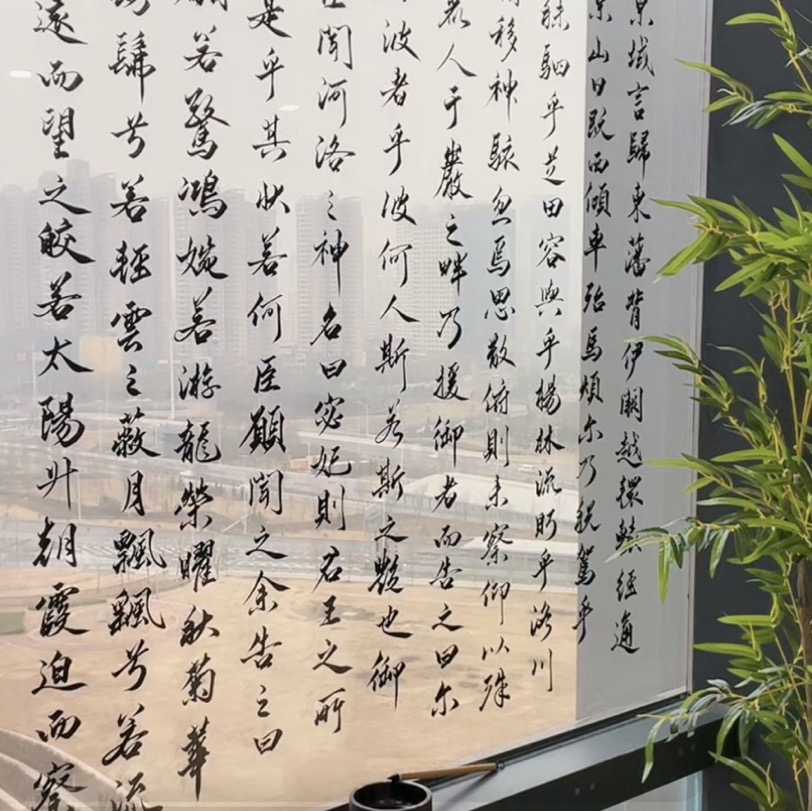 京域言歸東藩背伊闕越轘轅經通
山日既西傾車殆馬煩尔乃税駕乎
秣駟乎芝田容與乎楊林流眄乎洛川
移神駭忽焉思散俯則未察仰以殊
人于巖之畔乃援御者而告之曰尔
彼者乎彼何人斯若斯之豔也御
聞河洛之神名曰宓妃則君王之所
是乎其狀若何臣願聞之余告之曰
若驚鴻婉若游龍榮曜秋菊華
髴兮若輕雲之蔽月飄飄兮若流
遠而望之皎若太陽升朝霞迫而察